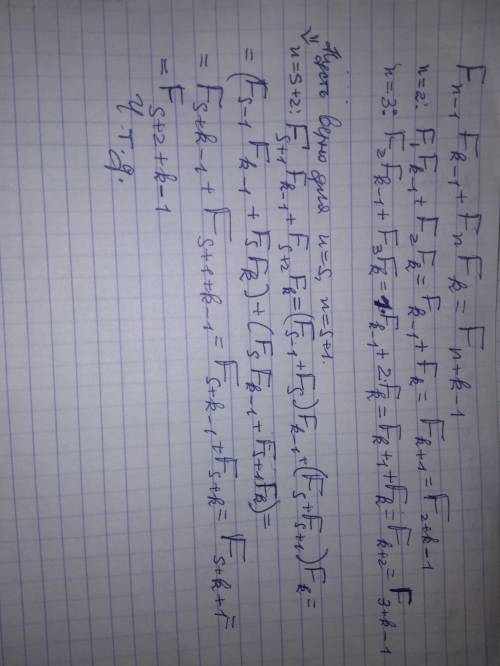 F_{n-1} F_{k-1} + F_n F_k = F_{n+k-1}
n=2: F_1 F_{k-1} + F_2 F_k = F_{k-1} + F_k = F_{k+1} = F_{2+k-1}
n=3: F_2 F_{k-1} + F_3 F_k = 1·F_{k-1} + 2·F_k = F_{k+1} + F_k = F_{k+2} = F_{3+k-1}
Пусть верно для n=s, n=s+1.
⇓
n=s+2: F_{s+1} F_{k-1} + F_{s+2} F_k = (F_{s-1} + F_s) F_{k-1} + (F_s + F_{s+1}) F_k =
= (F_{s-1} F_{k-1} + F_s F_k) + (F_s F_{k-1} + F_{s+1} F_k) =
= F_{s+k-1} + F_{s+1+k-1} = F_{s+k-1} + F_{s+k} = F_{s+k+1} =
= F_{s+2+k-1}
Ч.т.д.